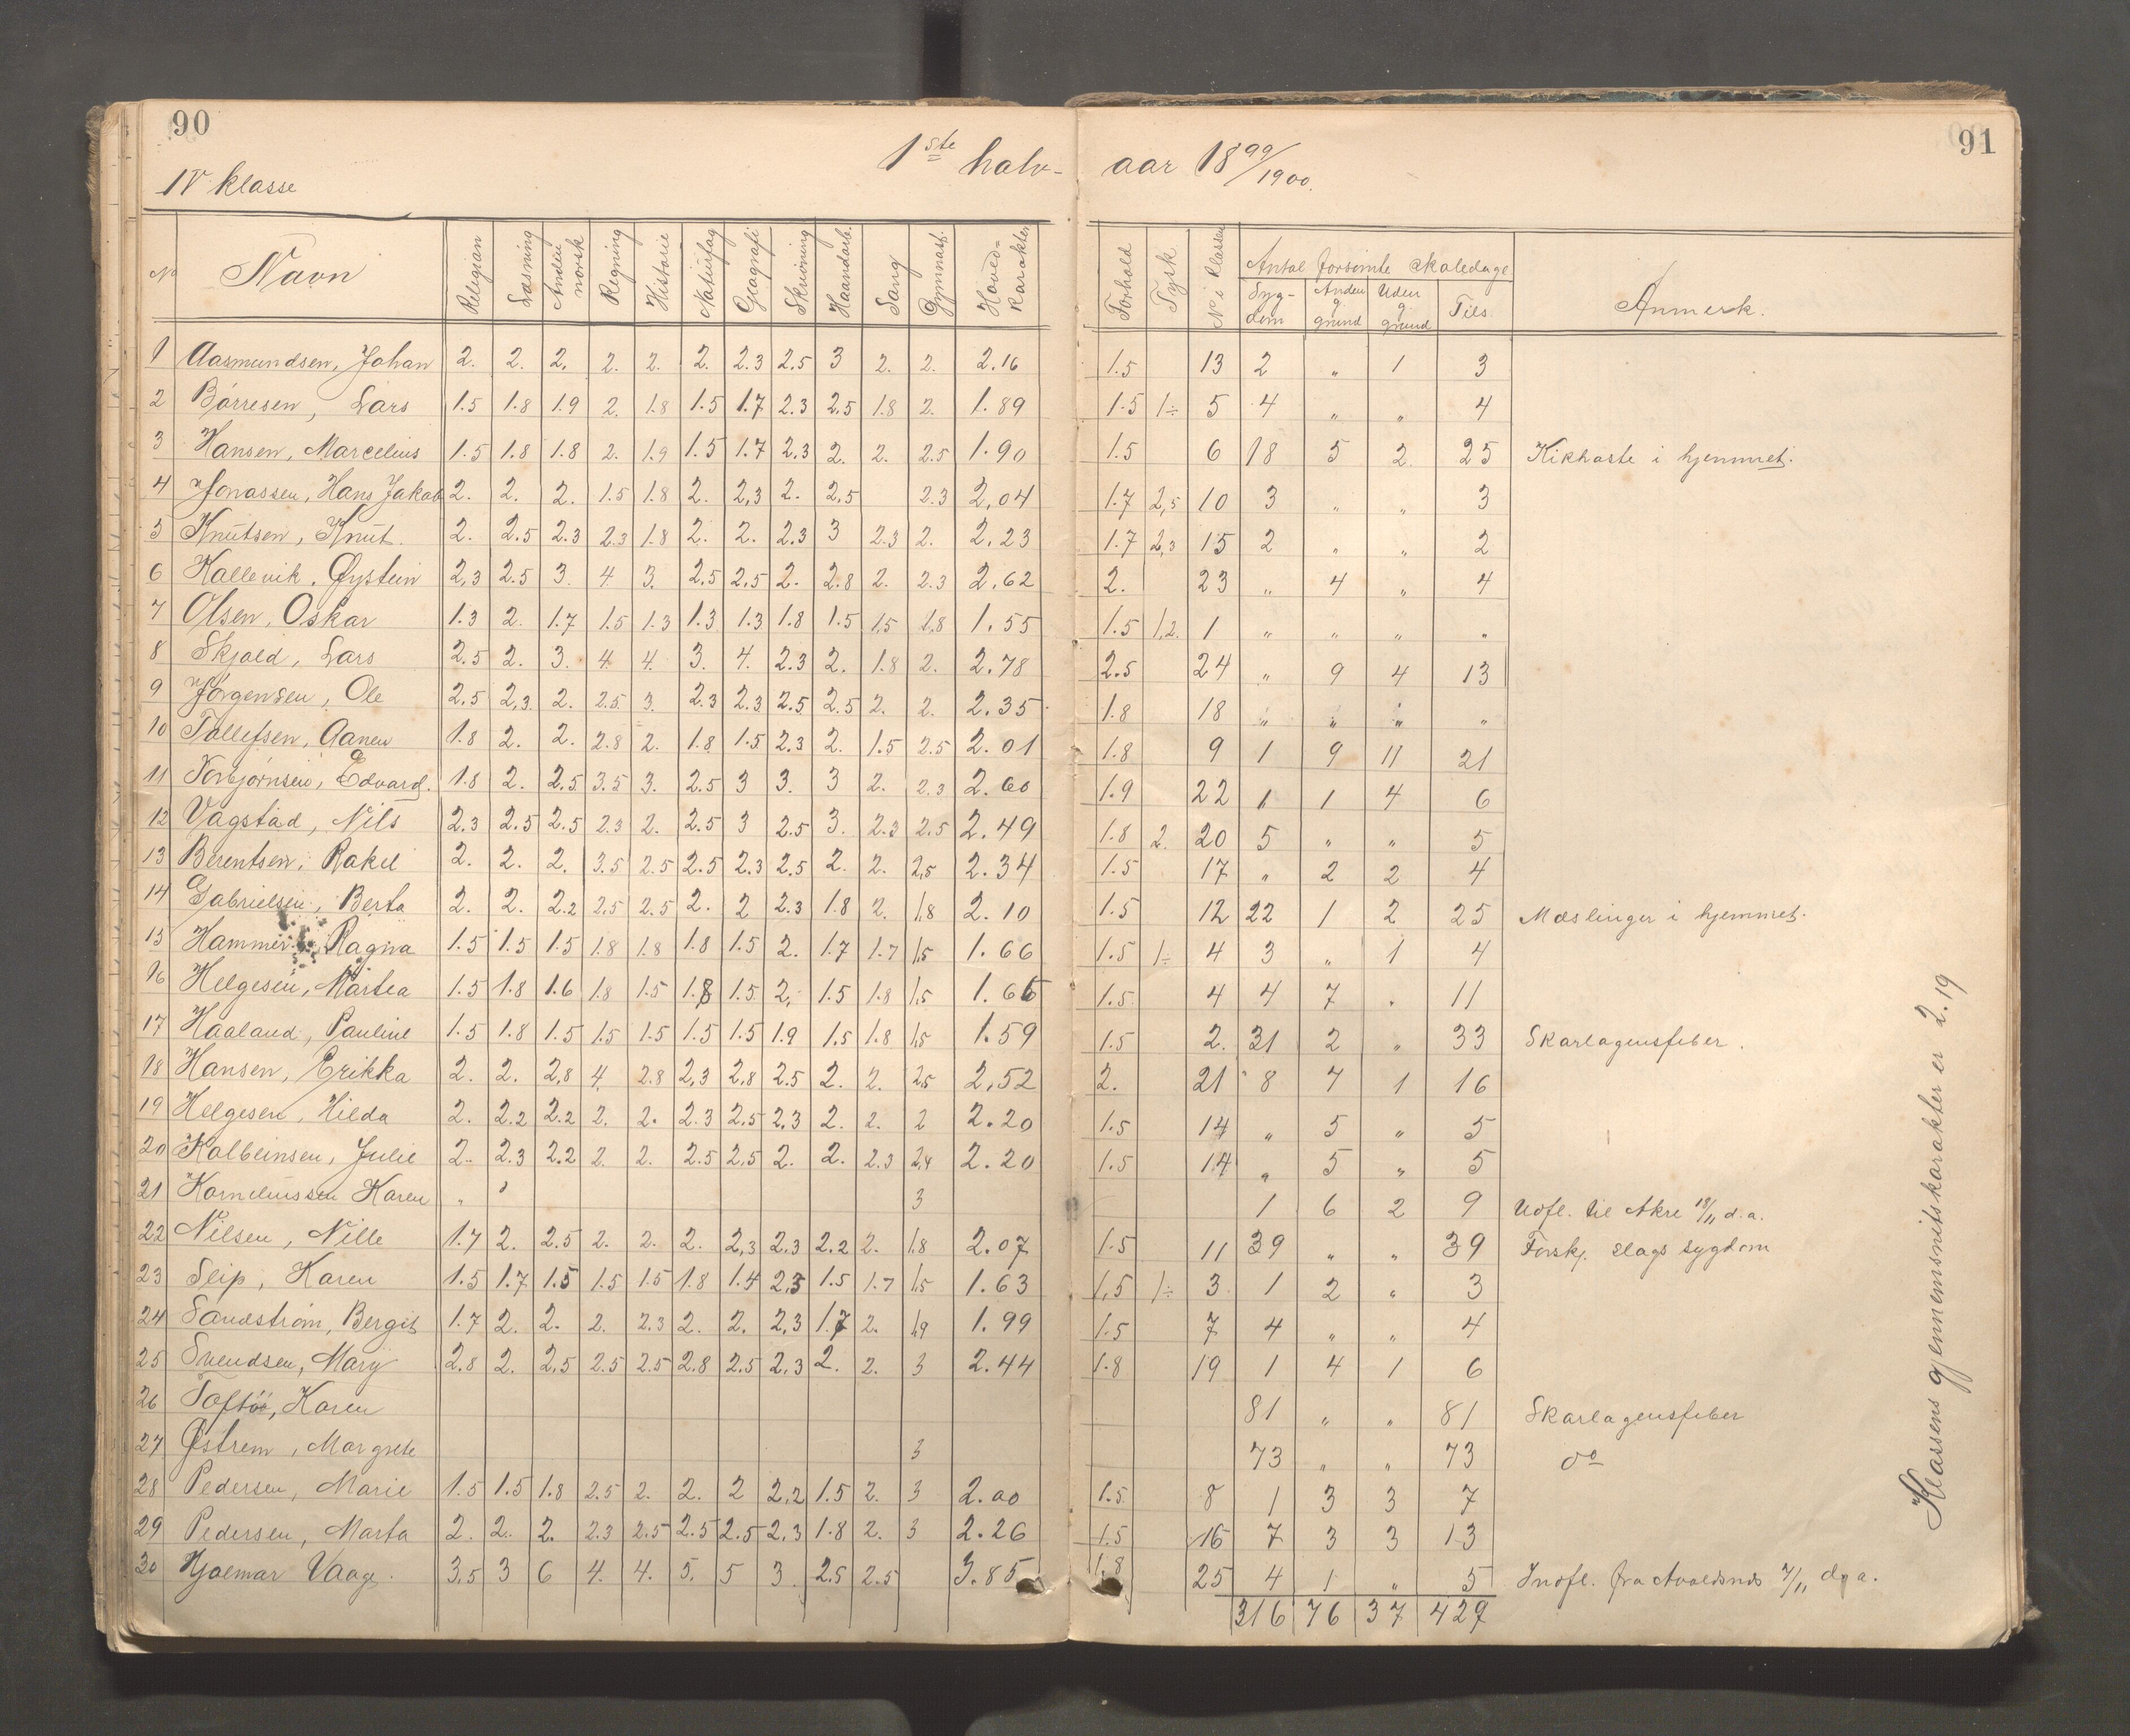 90
91
1ste halv-
aar 1899/1900.
IV klasse
No Navn Religion Læsning Anden norsk Regning Historie Naturfag Geografi Skrivning Haandarb. Sang Gymnast. Hoved-karakter Forhold Tysk N i klassen Antal forsømte skoledage Anmerk.
Syg-dom Anden g. grund Uden g. grund Tils.
1 Aasmundsen, Johan 2. 2. 2. 2. 2. 2. 2.3 2.5 3 2. 2. 2.16 1.5 13 2 " 1 3
2 Børresen, Lars 1.5 1.8 1.9 2. 1.8 1.5 1.7 2.3 2.5 1.8 2. 1.89 1.5 1÷ 5 4 " " 4
3 Hansen, Marcelius 1.5 1.8 1.8 2. 1.9 1.5 1.7 2.3 2. 2. 2.5 1.90 1.5 6 18 5 2 25 Kikhoste i hjemmet.
4 Jonassen, Hans Jakob 2. 2. 2. 1.5 1.8 2. 2,3 2. 2,5 2.3 2,04 1.7 2,5 10 3 " " 3
5 Knutsen, Knut. 2. 2.5 2.3 2.3 1.8 2. 2. 2.3 3 2.3 2. 2.23 1.7 2,3 15 2 " " 2
6 Kallevik, Øystein 2,3 2.5 3. 4 3. 2,5 2,5 2. 2.8 2. 2.3 2.62 2. 23 " 4 " 4
7 Olsen, Oskar 1.3 2. 1.7 1.5 1.3 1.3 1.3 1.8 1.5 1,5 1,8 1.55 1.5 1,2. 1 " " " "
8 Skjold, Lars 2.5 2. 3. 4. 4. 3. 4. 2.3 2. 1.8 2. 2.78 2.5 24 " 9 4 13
9 Jørgensen, Ole 2,5 2,3 2. 2.5 3. 2.3 2.3 2.5 2.5 2. 2. 2.35 1.8 18 " " " "
10 Tollefsen, Aanen 1.8 2. 2. 2.8 2. 1.8 1.5 2.3 2. 1.5 2.5 2.01 1.8 9 1 9 11 21
11 Torbjørnsen, Edvard. 1.8 2. 2.5 3.5 3. 2.5 3 3. 3 2. 2.3 2.60 1.9 22 1 1 4 6
12 Vagstad, Nils 2.3 2.5 2.5 2.3 2. 2.5 3 2.5 3. 2.3 2.5 2.49 1.8 2. 20 5 " " 5
13 Berentsen, Rakel 2. 2. 2. 3.5 2.5 2.5 2.3 2.5 2. 2. 2,5 2.34 1.5 17 " 2 2 4
14 Gabrielsen, Berta 2. 2. 2.2 2.5 2.5 2. 2 2.3 1.8 2. 1,8 2.10 1.5 12 22 1 2 25 Mæslinger i hjemmet.
15 Hammer, Ragna 1.5 1.5 1.5 1.8 1.8 1.8 1.5 2. 1.7 1.7 1,5 1.66 1.5 1÷ 4 3 " 1 4
16 Helgesen, Martea 1.5 1.8 1.6 1.8 1.5 1.8 1.5 2. 1.5 1.8 1,5 1.66 1.5 4 4 7 " 11
17 Haaland, Pauline 1.5 1.8 1.5 1.5 1.5 1.5 1.5 1.9 1.5 1.8 1,5 1.59 1.5 2. 31 2 " 33 Skarlagensfeber.
18 Hansen, Erikka 2. 2. 2,8 4. 2.8 2,3 2,8 2.5 2. 2. 2,5 2,52 2. 21 8 7 1 16
19 Helgesen, Hilda 2. 2.2 2.2 2. 2. 2.3 2,5 2,3 2. 2. 2 2.20 1.5 14 " 5 " 5
20 Kolbeinsen, Julie 2. 2.3 2.2 2. 2. 2.5 2,5 2. 2. 2.3 2,4 2.20 1.5 14 " 5 " 5
21 Korneliussen Karen " " 3 1 6 2 9 Udfl. til Akre 18/11 d.a.
22 Nilsen, Nille 1.7 2. 2.5 2. 2. 2. 2,3 2.3 2.2 2. 1.8 2.07 1.5 11 39 " " 39 Forskj. slags sygdom
23 Seip, Karen 1.5 1.7 1.5 1.5 1.5 1.8 1.4 2,5 1.5 1.7 1,5 1.63 1,5 1÷ 3 1 2 " 3
24 Sandstrøm, Bergit 1.7 2. 2. 2. 2.3 2. 2. 2,3 1.7 2. 1,9 1.99 1.5 7 4 " " 4
25 Svendsen, Mary 2.8 2. 2,5 2.5 2.5 2.8 2.5 2,3 2. 2. 3 2.44 1.8 19 1 4 1 6
26 Toftøe, Karen 81 " " 81 Skarlagensfeber
27 Østrem, Margrete 3 73 " " 73 do
28 Pedersen, Marie 1.5 1.5 1.8 2.5 2. 2. 2 2,2 1.5 2. 3 2.00 1.5 8 1 3 3 7
29 Pedersen, Marta 2. 2. 2. 2.3 2.5 2.5 2.5 2,3 1.8 2. 3 2.26 1.5 16 7 3 3 13
30 Hjalmar Vaage. 3,5 3 6 4. 4. 5. 5 3. 2.5 2.5 3.85 1.8 25 4 1 " 5 Indfl. fra Avaldsnes 7/11 d.a.
316 76 37 429
Klassens gjennemsnitskarakter er 2.19